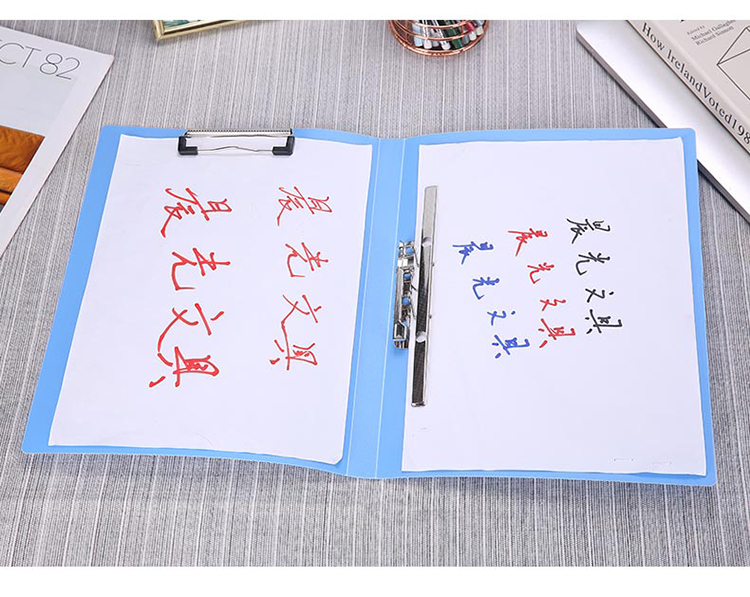 CT 82
Edited by
Michael Gallagher
Richard Sinnott
How Ireland Voted 198
晨光文具
晨光文具
晨光文具
晨光文具
晨光文具